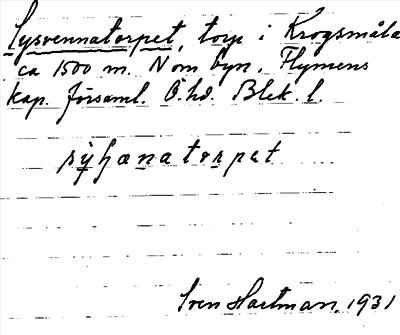 Lysvennatorpet, torp i Krogsmåla
ca 1500 m. N om byn. Flymens
kap. församl. Ö. hd. Blek. l.
Sven Hartman, 1931